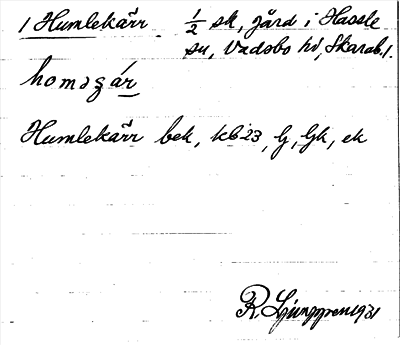 1 Humlekärr. 1/2 sk, gård i Hassle
sn, Vadsbo hd, Skarab. l.
homəgár
Humlekärr bek, kb 23, G, Gk, ek
R. Ljunggren 1931